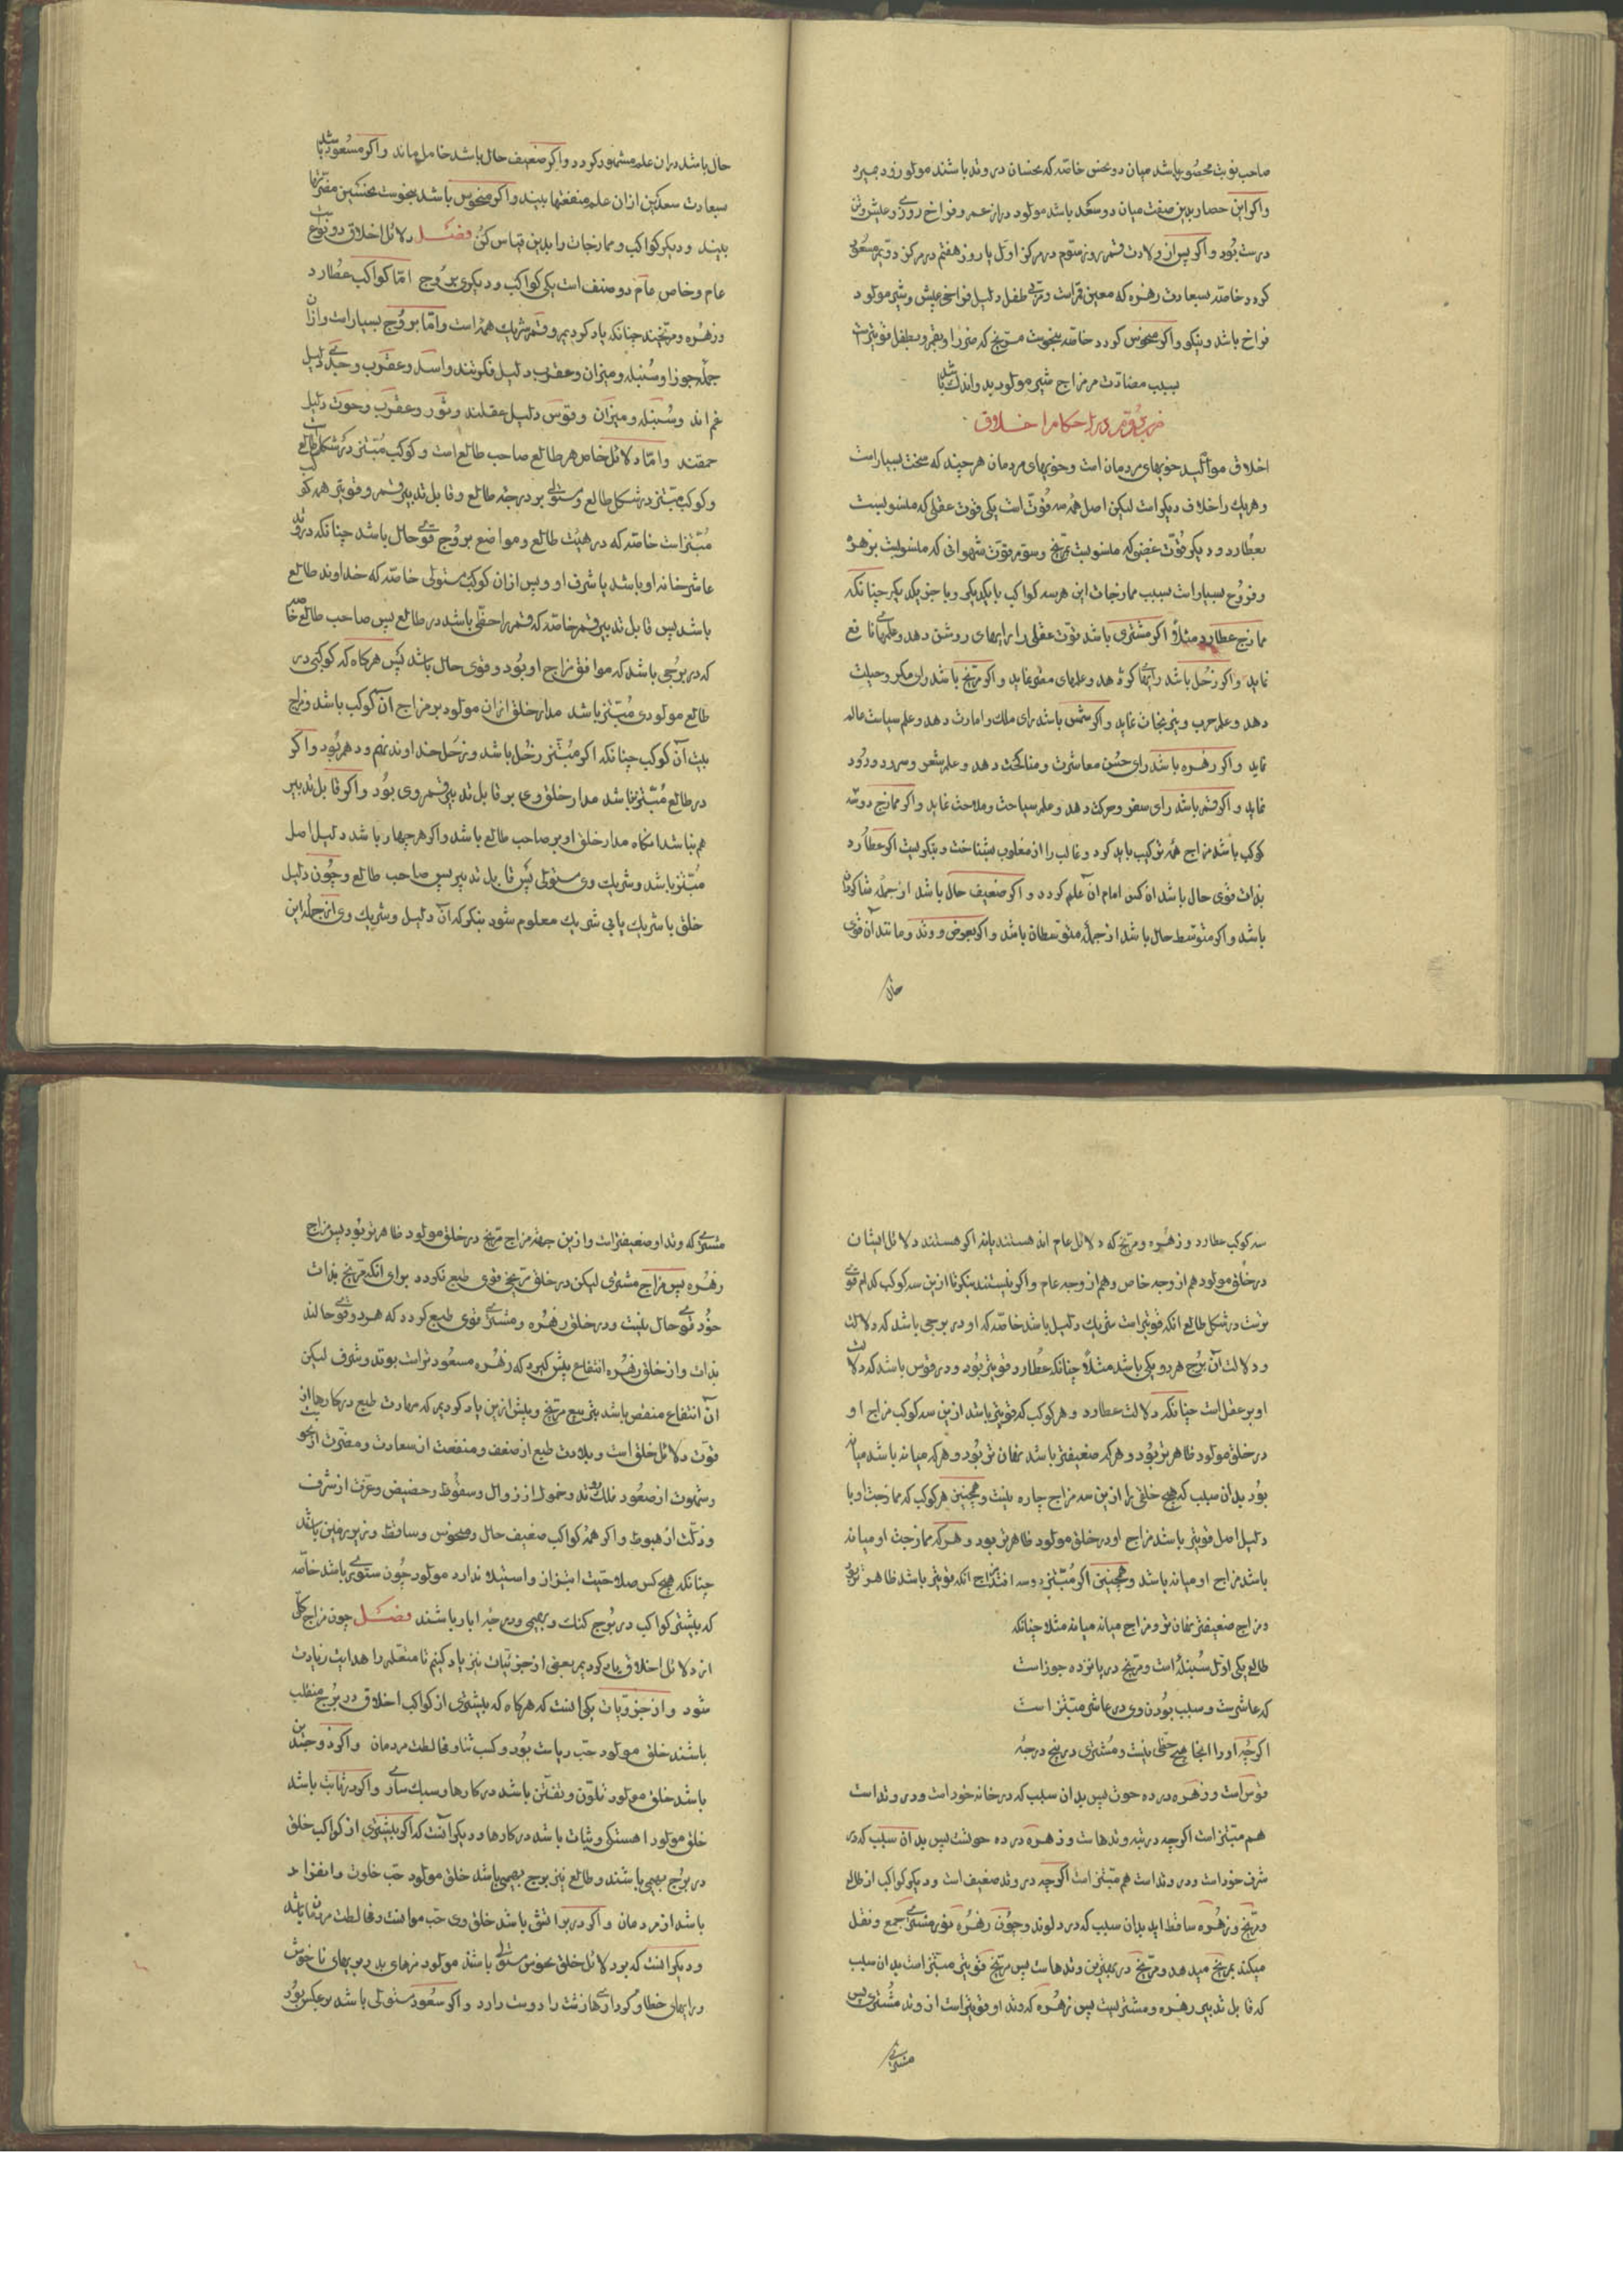 صاحب نوبت محصور باشد میان دو نحس خاصه که نحسان در وتد باشند مولود زود بمیرد
واکر این حصار بدین صفت میان دو سعد باشد مولود دراز عمر و فراخ روزی و عیش وتن
درست بود واکر پس از ولادت قمر روز سوم در مرکز اول یا روز هفتم در مرکز دوم مسعود
کردد خاصه بسعادت زهره که معین قمرست در تربیت طفل دلیل فراخی عیش و شیر مولود
فراخ باشد و نیکو واکر منحوس کردد خاصه بنحوست مریخ که ضرر او بقمر و بطفل قویترست
بسبب مضادت مر مزاج شیر مولود بد واندک باشد
ضرب دوم در احکام اخلاق
اخلاق موالید خویهای مردمان است وخویهای مردمان هرچند که سخت بسیارست
وهریک را خلاف دیکر است لیکن اصل همه سه قوت است یکی قوت عقلی که منسوبست
بعطارد و دیکر قوت غضبی که منسوبست بمریخ وسوم قوت شهوانی که منسوبست بزهره
وفروع بسیارست بسبب ممازجات این هر سه کواکب با یکدیکر و با جز یکدیکر چنانکه
ممازج عطارد مثلا اکر مشتری باشد قوت عقلی را رایهای روشن دهد و علمهای نافع
نماید واکر زحل باشد رایهای کژ دهد و علمهای مضر نماید واکر مریخ باشد رای مکر و حیلت
دهد و علم حرب و نیرنجات نماید واکر شمس باشد رای ملک وامارت دهد و علم سیاست عالم
نماید واکر زهره باشد رای حسن معاشرت و مناکحت دهد و علم شعر و سرود و رود
نماید واکر قمر باشد رای سفر و حرکت دهد و علم سیاحت وملاحت نماید واکر ممازج دو سه
کوکب باشد مزاج همه ترکیب باید کرد و غالب را از مغلوب شناخت و نیکو بست اکر عطارد
بذات قوی حال باشد ان کس امام ان علم کردد واکر ضعیف حال باشد از جمله شاکردان
باشد واکر متوسط حال باشد از جمله متوسطان باشد واکر بعرض و وتد ومانند آن قوی
حال
حال باشد دران علم مشهور کردد واکر ضعیف حال باشد خامل ماند واکر مسعود باشد
بسعادت سعدین ازان علم منفعتها بیند واکر منحوس باشد بنحوست نحسین مضرتها
بیند ودیکر کواکب وممازجات را بدین قیاس کن فصل دلائل اخلاق دو نوع است
عام وخاص عام دو صنف است یکی کواکب و دیکری بروج اما کواکب عطارد
وزهره ومریخند چنانکه یاد کردیم وقمر شریک همه است واما بروج بسیارست وازان
جمله جوزا وسنبله ومیزان وعقرب دلیل فکرتند واسد وعقرب وجدی دلیل
غم اند وسنبله ومیزان وقوس دلیل عقلند وثور وعقرب وحوت دلیل
حمقند واما دلائل خاص هر طالع صاحب طالع است وکوکب مبتز در شکل طالع
وکوکب مبتز در شکل طالع ومستولی بر درجه طالع وقابل تدبیر قمر وقویتر همه کوکب
مبتزست خاصه که در هیئت طالع ومواضع بروج قوی حال باشد چنانکه در وتد
عاشر خانه او باشد یا شرف او وپس ازان کوکب مستولی خاصه که خداوند طالع
باشد پس قابل تدبیر قمر خاصه که قمر را حظی باشد در طالع پس صاحب طالع خاصه
که در برجی باشد که موافق مزاج او بود وقوی حال باشد پس هرکاه که کوکبی در
طالع مولودی مبتز باشد مدار خلق ازان مولود بر مزاج آن کوکب باشد ومزاج
بیت آن کوکب چنانکه اکر مبتز زحل باشد وزحل خداوند نهم و دهم بود واکر
در طالع مبتز نباشد مدار خلق وی بر قابل تدبیر قمر وی بود واکر قابل تدبیر
هم نباشد انکاه مدار خلق او بر صاحب طالع باشد واکر هر چهار باشد دلیل اصل
مبتز باشد وشریک وی مستولی پس قابل تدبیر پس صاحب طالع وچون دلیل
خلق با شریک یا بی شریک معلوم شود بنکر که آن دلیل وشریک وی از جمله این
سه کوکب عطارد وزهره ومریخ که دلائل عام اند هستند یا نه اکر هستند دلائل ایشان
در خلق مولود هم از وجه خاص وهم از وجه عام واکر نیستند بنکر تا ازین سه کوکب کدام قوی
ترست در شکل طالع انکه قویترست شریک دلیل باشد خاصه که او در برجی باشد که دلالت
ودلالت آن برج هر دو یکی باشد مثلا چنانکه عطارد قویتر بود ودر قوس باشد که دلالت
او بر عقل است چنانکه دلالت عطارد وهر کوکب که قویتر باشد ازین سه کوکب مزاج او
در خلق مولود ظاهرتر بود وهرکه ضعیفتر باشد نهان تر بود وهرکه میانه باشد میانه
بود بدان سبب که هیچ خلقی را ازین سه مزاج چاره نیست وهمچنین هر کوکب که ممازجت او با
دلیل اصل قویتر باشد مزاج او در خلق مولود ظاهرتر بود وهرکه ممازجت او میانه
باشد مزاج او میانه باشد وهمچنین اکر مبتز دو سه افتد مزاج انکه قویتر باشد ظاهرتر بود
ومزاج ضعیفتر نهان تر ومزاج میانه میانه مثلا چنانکه
طالع یکی اول سنبله است ومریخ در پانزده جوزاست
که عاشرست وسبب بودن وی در عاشر مبتز است
اکرچه او را انجا هیچ حظی نیست ومشتری در پنج درجه
قوس است وزهره در ده حوت پس بدان سبب که در خانه خودست ودر وتدست
هم مبتزست اکرچه در تبه وتدهاست وزهره در ده حوتست پس بدان سبب که در
شرف خودست ودر وتدست هم مبتزست اکرچه در وتد ضعیف است ودیکر کواکب از طالع
ومریخ وزهره ساقط اید بدان سبب که در دلوند وچون زهره نور مشتری جمع ونقل
میکند بمریخ میدهد ومریخ در بهترین وتدهاست پس مریخ قویتر مبتزست بدان سبب
که قابل تدبیر زهره ومشتریست پس زهره که وتد او قویترست از وتد مشتری پس
مشتری
مشتری که وتد او ضعیفترست وازین جهت مزاج مریخ در خلق مولود ظاهرتر بود پس مزاج
زهره پس مزاج مشتری لیکن در خلق مریخ قوی طبع نکردد برای انکه مریخ بذات
خود قوی حال نیست ودر خلق زهره ومشتری قوی طبع کردد که هر دو قوی حالند
بذات واز خلق زهره انتفاع بیش کیرد که زهره مسعودترست بوتد وشرف لیکن
آن انتفاع منغص باشد بتربیع مریخ وپیش ازین یاد کردیم که مهارت طبع در کارها از
قوت دلائل خلق است وبلادت طبع از ضعف ومنفعت از سعادت ومضرت از نحوست
وشهوت از صعود فلک وتد وخمول از زوال وسقوط وحضیض وعزت از شرف
وذلت از هبوط واکر همه کواکب ضعیف حال ومنحوس وساقط وزیر زمین باشند
چنانکه هیچ کس صلاحیت ابتزاز واستیلا ندارد مولود چون ستوری باشد خاصه
که بیشتر کواکب در بروج کنک وبهیمی ودرجه ابار باشند فصل چون مزاج کل
از دلائل اخلاق یاد کردیم بعضی از جزئیات نیز یاد کنیم تا متعلم را هدایت زیادت
شود واز جزویات یکی انست که هرکاه که بیشتری از کواکب اخلاق در بروج منقلب
باشند خلق مولود حب ریاست بود وکسب ثنا ومخالطت مردمان واکر ذوجسدین
باشد خلق مولود تلون وتفنن باشد در کارها وسبک ساری واکر در ثابت باشد
خلق مولود اهستکی وثبات باشد در کارها ودیکر آنست که اکر بیشتری از کواکب خلق
در بروج بهیمی باشند وطالع نیز برج بهیمی باشد خلق مولود حب خلوت وانفراد
باشد از مردمان واکر در برج انسی باشد خلق وی حب موانست ومخالطت مردمان باشد
ودیکر انست که بر دلائل خلق نحوس مستولی باشند مولود مزهای بد وبویهای ناخوش
ورایهای خطا وکردارهای زشت را دوست دارد واکر سعود مستولی باشد بر عکس بود